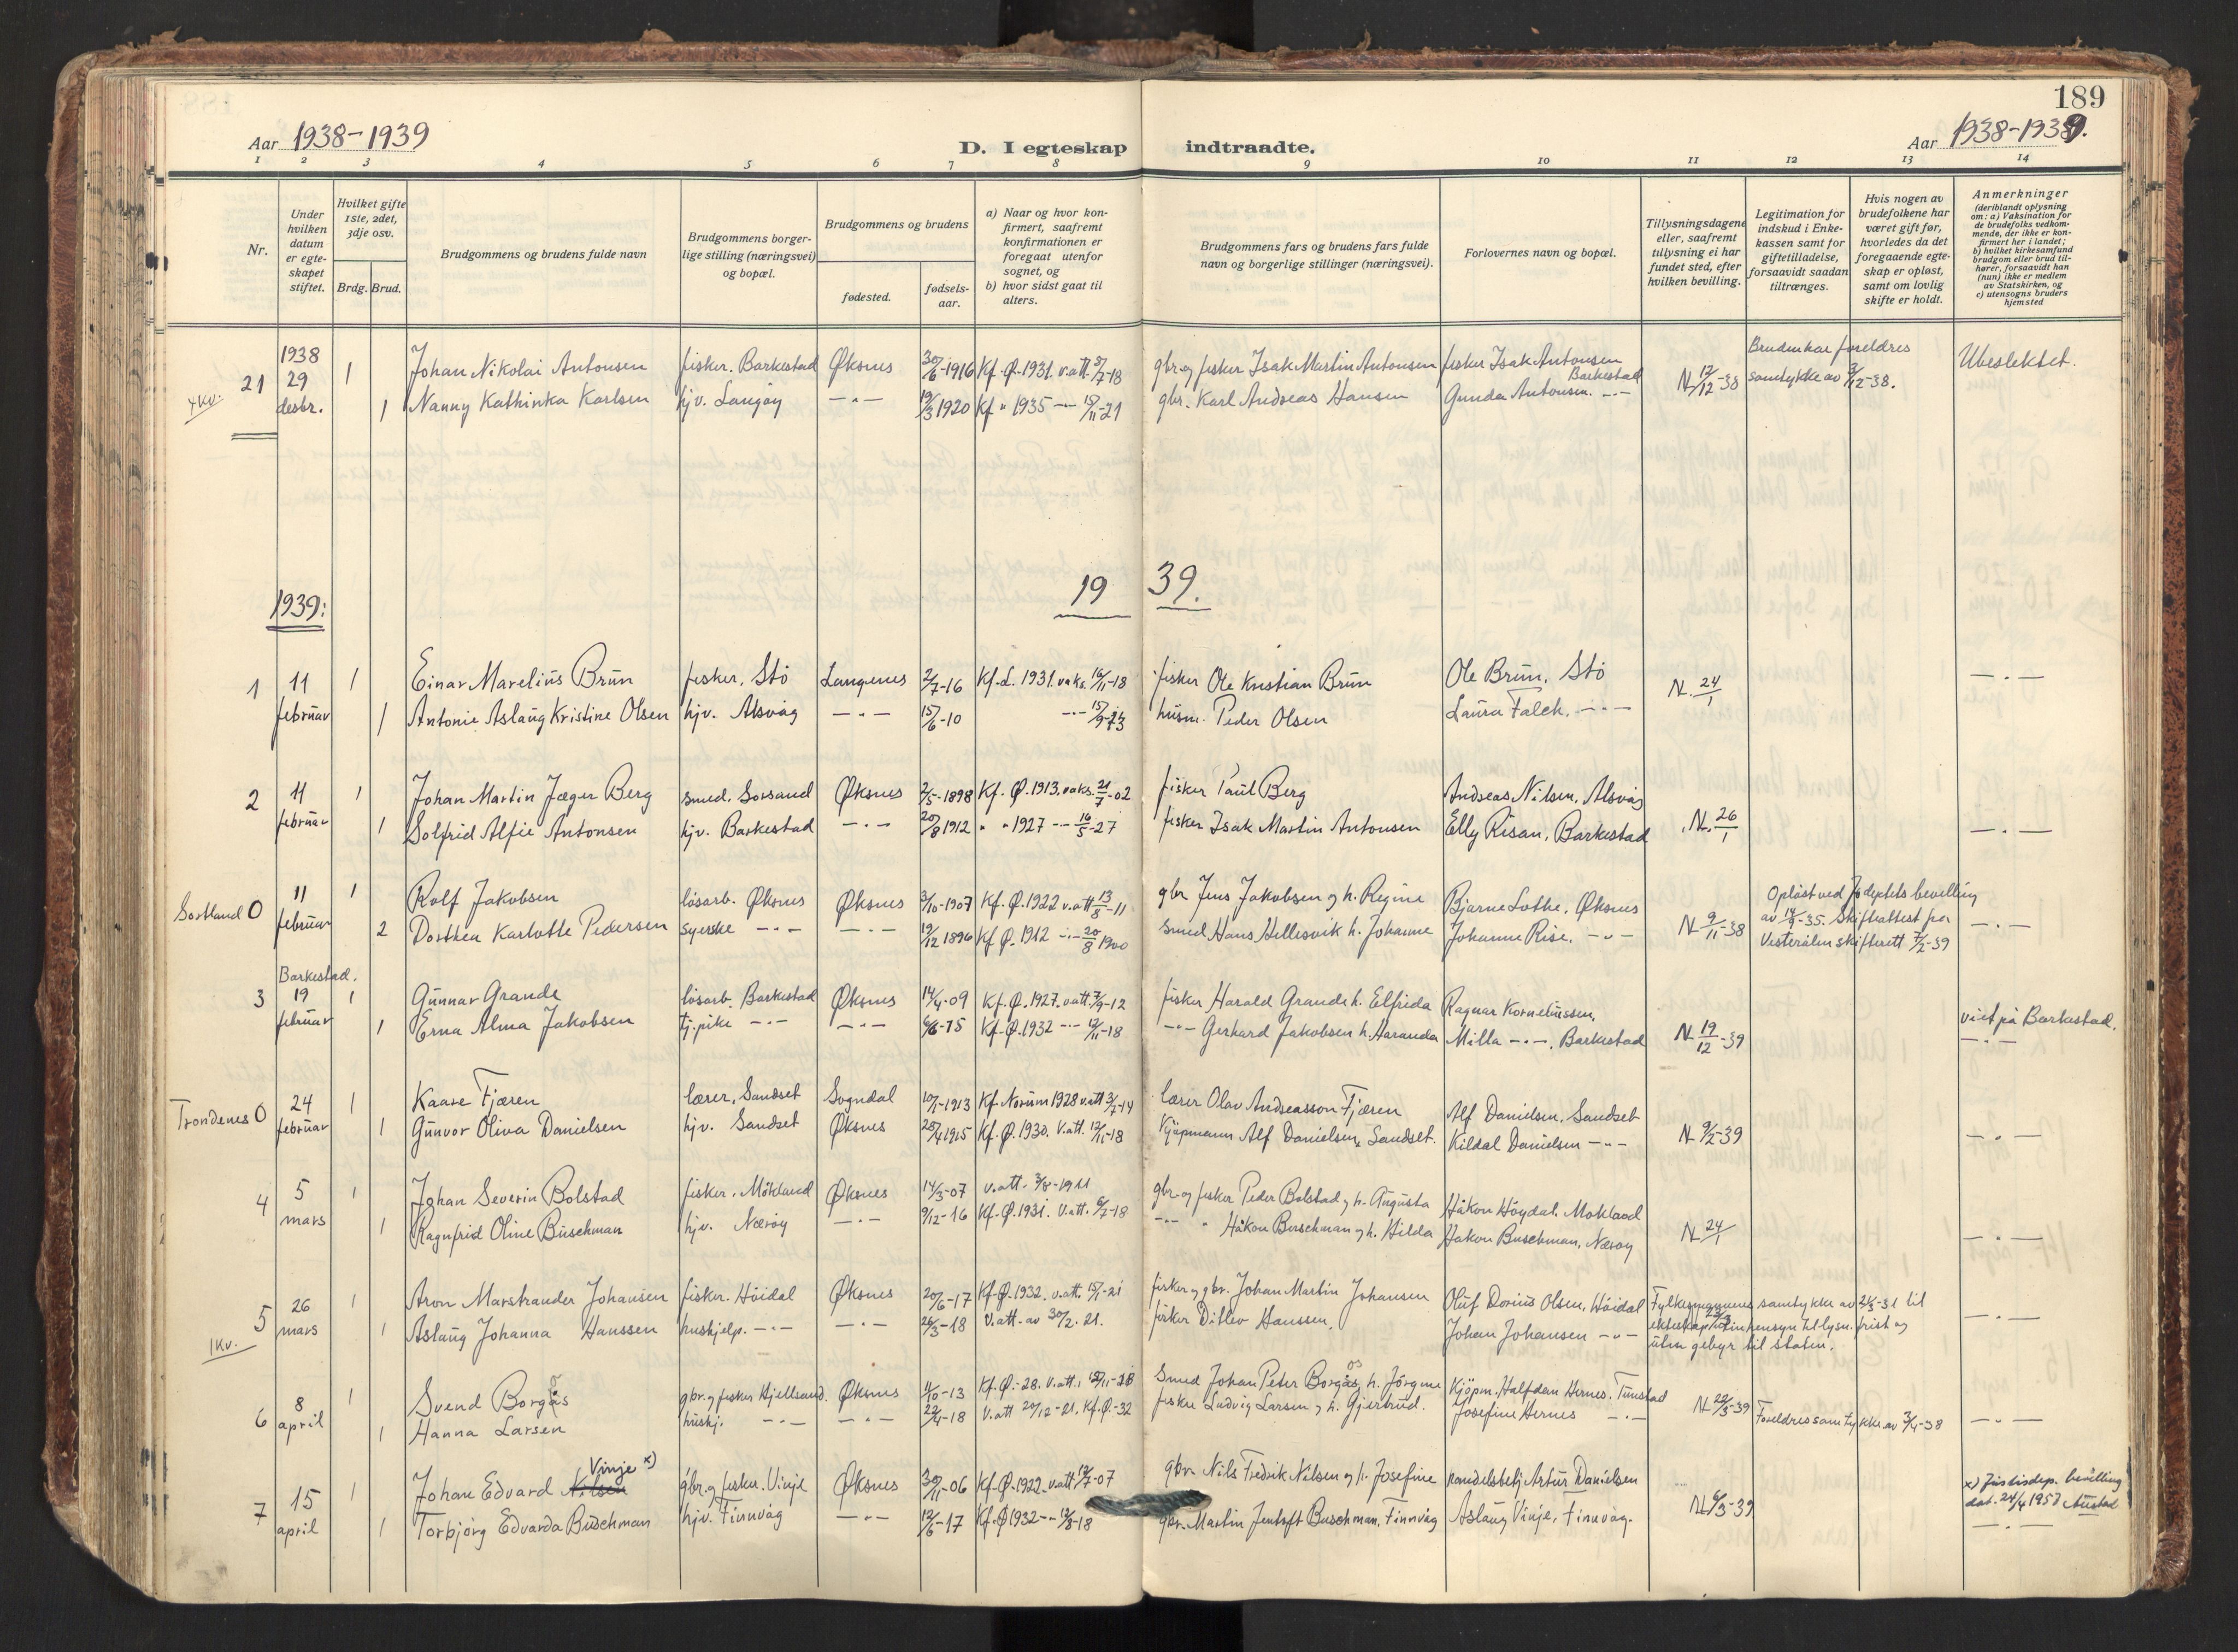 189
Aar 1938-1939
D. I egteskap indtraadte.
Aar 1938-1939.
1 2 3 4 5 6 7 8 9 10 11 12 13 14
Nr.
Under hvilken datum er egteskapet stiftet.
Hvilket gifte 1ste, 2det, 3dje osv.
Brdg. Brud.
Brudgommens og brudens fulde navn
Brudgommens borgerlige stilling (næringsvei) og bopæl.
Brudgommens og brudens
fødested.
fødselsaar.
a) Naar og hvor konfirmert, saafremt konfirmationen er foregaat utenfor sognet, og
b) hvor sidst gaat til alters.
Brudgommens fars og brudens fars fulde navn og borgerlige stillinger (næringsvei).
Forlovernes navn og bopæl.
Tillysningsdagene eller, saafremt tillysning ei har fundet sted, efter hvilken bevilling.
Legitimation for indskud i Enkekassen samt for giftetilladelse, forsaavidt saadan tiltrænges.
Hvis nogen av brudefolkene har været gift før, hvorledes da det foregaaende egteskap er opløst, samt om lovlig skifte er holdt.
Anmerkninger
(deriblandt oplysning om: a) Vaksination for de brudefolks vedkommende, der ikke er konfirmert her i landet; b) hvilket kirkesamfund brudgom eller brud tilhører, forsaavidt han (hun) ikke er medlem av Statskirken, og c) utensogns bruders hjemsted
4 kv. 21 1938 29 desbr. 1 Johan Nikolai Antonsen fisker. Barkestad Øksnes 30/6-1916 Kf. Ø. 1931. v.att. 3/7-18 gbr. og fisker Isak Martin Antonsen fisker Isak Antonsen Barkestad N 12/12-38 Bruden har foreldres samtykke av 3/12-38. Ubeslektet.
1 Nanny Kathinka Karlsen hjv. Langøy -"- 19/3 1920 Kf " 1935 -"- 15/11-21 gbr. Karl Andreas Hansen Gunda Antonsen. -"-
1939: 1939.
1 11 februar 1 Einar Marelius Brun fisker, Stö Langenes 2/7-16 Kf. L. 1931. vaks. 16/11-18 fisker Ole Kristian Brun Ole Brun, Stö N. 24/1 -"-
1 Antonie Aslaug Kristine Olsen hjv. Alsvåg -"- 15/6-10 -"- 15/9-23 husm. Peder Olsen Laura Falch, -"-
2 11 februar 1 Johan Martin Jæger Berg smed, Sorsand Øksnes 2/5-1898 Kf. Ø. 1913. vaks. 21/7-02 fisker Paul Berg Andreas Nilsen, Alsvåg N. 26/1 -"-
1 Solfrid Alfie Antonsen hjv. Barkestad -"- 20/8 1912 " " 1927 -"- 16/5-27 fisker Isak Martin Antonsen Elly Risan, Barkestad
Sortland 0 11 februar 1 Rolf Jakobsen lösarb. Øksnes Øksnes 3/10-1907 Kf. Ø. 1922 v.att 13/8-11 gbr Jens Jakobsen og h. Regine Bjarne Lothe, Øksnes N 9/11-38 Oplöst ved Jo deptets bevilling av 14/9-35. Skifteattest fra Vesterålen skifterett 7/2-39 -"-
2 Dorthea Karlotte Pedersen syerske -"- -"- 19/12 1896 Kf Ø. 1912 -"- 20/8 1900 smed Hans Hellesvik h. Johanne Johanne Rise. -"-
3 Barkestad. 19 februar 1 Gunnar Grande lösarb. Barkestad Øksnes 14/4-09 Kf. Ø. 1927. v.att. 7/9-12 fisker Harald Grande h. Elfrida Ragnar Kornelinssen, N 19/12-39 viet på Barkestad.
1 Erna Alma Jakobsen tj.pike -"- -"- 6/6-15 Kf. Ø. 1932 -"- 12/11-18 -"- Gerhard Jakobsen h. Haranda Milla -"-, Barkestad -"-
Trondenes 0 24 februar 1 Kaare Fjæren lærer, Sandset Sogndal 10/1-1913 Kf. Norum 1928 v.att 3/7-14 lærer Olav Andreasson Fjæren Alf Danielsen, Sandset N 9/2-39 -"-
1 Gunvor Oliva Danielsen hjv. Sandset Øksnes 28/4 1915 Kf. Ø. 1930. V.att. 12/11-18 Kjöpmann Alf Danielsen, Sandset. Kildal Danielsen -"-
4 5 mars 1 Johan Severin Bolstad fisker, Möklaud Øksnes 14/3-07 v.att. 3/8-1911 gbr. og fisker Peder Bolstad og h. Augusta Håkon Höydal, Mokland N 24/1 -"-
1 Ragnfrid Oline Buschman hjv. Næröy -"- 9/12-16 Kf. Ø. 1931. V.att. 6/7-18 -"- " Håkon Buschman og h. Hilda Håkon Buschman, Næroy
1 Kv. 5 26 mars 1 Aron Marstrander Johansen fisker. Höidal Øksnes 20/6-17 Kf. Ø. 1932. v.att. 15/1-21 fisker og gbr. Johan Martin Johansen Oluf Dorius Olsen, Höidal Fylkesmannens samtykke av 21/3-31 til ekteskap uten hensyn til lysn. frist og uten gebyr til staten. -"-
1 Aslaug Johanna Hanssen hushjelp. -"- -"- 26/3-18 V.att. av 30/2.21. fisker Ditlev Hanssen, Johan Johansen -"-
6 8 april 1 Svend Borgos gbr. og fisker Hjellsand. Øksnes 1/10-13 Kf. Ø.-28. V.att. 12/11-18 Smed Johan Peter Borgos h. Jörgine Kjöpm. Halfdan Hernes. Tunstad N 22/3-39 Foreldres samtykke av 3/4-38 -"-
1 Hanna Larsen hushj. -"- -"- 22/4-18 V.att 20/12-21. Kf. Ø-32 fisker Ludvig Larsen og h. Gjertrud. Josefine Hernes -"-
7 15 april 1 Johan Edvard Nilsen Vinje x) gbr. og fisker. Vinje Øksnes 30/11-06 Kf. Ø. 1922. v.att 12/7-07 gbr. Nils Fredrik Nilsen og h. Josefine handelsbetj Artur Danielsen N 6/3-39 x) Justisdep. bevilling dat. 24/4 1957 Austad
1 Torbjörg Edvarda Buschman hjv. Finnvåg -"- 12/6-17 Kf. Ø 1932 -"- 12/8-18 gbr. Martin Jentoft Buschman, Finnvåg Aslaug Vinje, Finnvåg. -"-